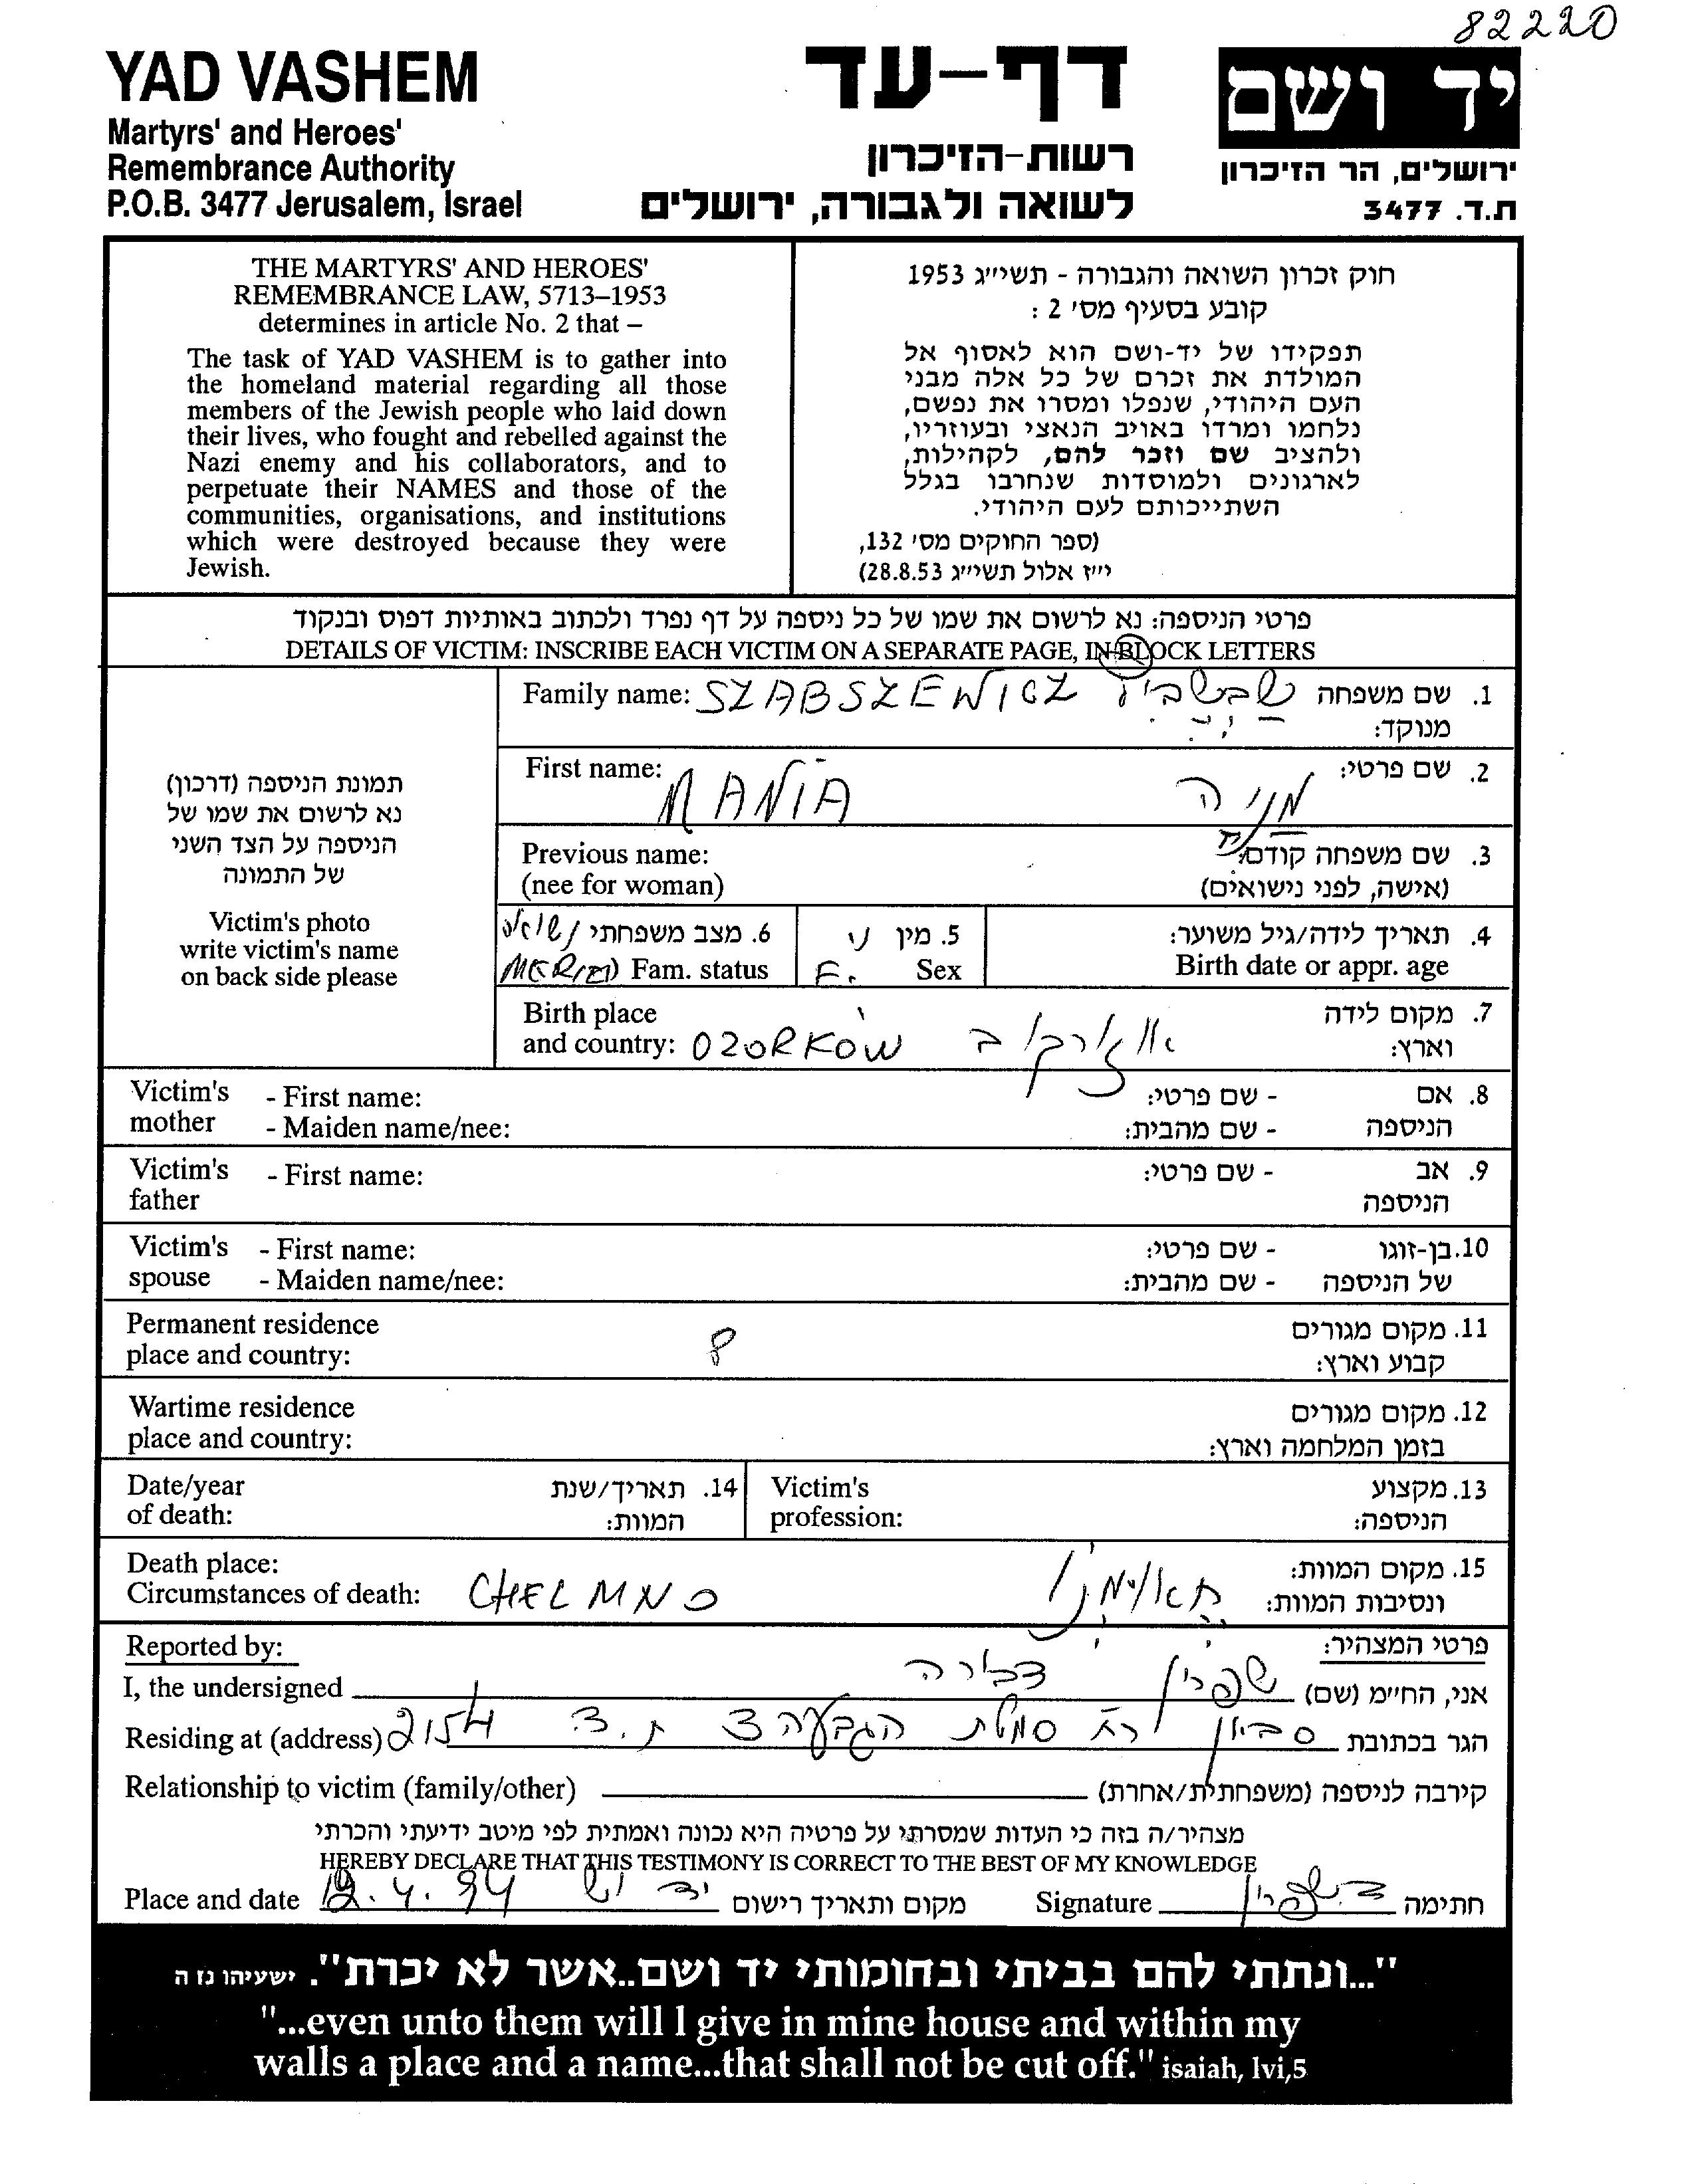 82220
YAD VASHEM
Martyrs' and Heroes'
Remembrance Authority
P.O.B. 3477 Jerusalem, Israel
דף-עד
רשות-הזיכרון
לשואה ולגבורה, ירושלים
יד ושם
ירושלים, הר הזיכרון
ת.ד. 3477
THE MARTYRS' AND HEROES'
REMEMBRANCE LAW, 5713–1953
determines in article No. 2 that –
The task of YAD VASHEM is to gather into
the homeland material regarding all those
members of the Jewish people who laid down
their lives, who fought and rebelled against the
Nazi enemy and his collaborators, and to
perpetuate their NAMES and those of the
communities, organisations, and institutions
which were destroyed because they were
Jewish.
חוק זכרון השואה והגבורה - תשי״ג 1953
קובע בסעיף מס׳ 2 :
תפקידו של יד-ושם הוא לאסוף אל
המולדת את זכרם של כל אלה מבני
העם היהודי, שנפלו ומסרו את נפשם,
נלחמו ומרדו באויב הנאצי ובעוזריו,
ולהציב שם וזכר להם, לקהילות,
לארגונים ולמוסדות שנחרבו בגלל
השתייכותם לעם היהודי.
(ספר החוקים מס׳ 132,
י״ז אלול תשי״ג 28.8.53)
פרטי הניספה: נא לרשום את שמו של כל ניספה על דף נפרד ולכתוב באותיות דפוס ובנקוד
DETAILS OF VICTIM: INSCRIBE EACH VICTIM ON A SEPARATE PAGE, IN BLOCK LETTERS
תמונת הניספה (דרכון)
נא לרשום את שמו של
הניספה על הצד השני
של התמונה
Victim's photo
write victim's name
on back side please
Family name: SZABSZEWICZ
1. שם משפחה
מנוקד:
First name: MANIA
2. שם פרטי: מניה
Previous name:
(nee for woman)
3. שם משפחה קודם:
(אישה, לפני נישואים)
6. מצב משפחתי נשואה
Fam. status
5. מין נ
Sex F.
4. תאריך לידה/גיל משוער:
Birth date or appr. age
Birth place
and country: OZORKÓW
7. מקום לידה
וארץ: אוזורקוב
Victim's - First name:
mother - Maiden name/nee:
8. אם - שם פרטי:
הניספה - שם מהבית:
Victim's - First name:
father
9. אב - שם פרטי:
הניספה
Victim's - First name:
spouse - Maiden name/nee:
10. בן-זוגו - שם פרטי:
של הניספה - שם מהבית:
Permanent residence
place and country:
11. מקום מגורים
קבוע וארץ:
Wartime residence
place and country:
12. מקום מגורים
בזמן המלחמה וארץ:
Date/year
of death:
14. תאריך/שנת
המוות:
Victim's
profession:
13. מקצוע
הניספה:
Death place:
Circumstances of death: CHELMNO
15. מקום המוות:
ונסיבות המוות:
Reported by:
פרטי המצהיר:
I, the undersigned
אני, החי״מ (שם) שפרין דבורה
Residing at (address)
הגר בכתובת סביון רח סמטת הגבעה 3 ת.ד. 2154
Relationship to victim (family/other)
קירבה לניספה (משפחתית/אחרת)
מצהיר/ה בזה כי העדות שמסרתי על פרטיה היא נכונה ואמתית לפי מיטב ידיעתי והכרתי
HEREBY DECLARE THAT THIS TESTIMONY IS CORRECT TO THE BEST OF MY KNOWLEDGE
Place and date 12.4.94 יד ושם מקום ותאריך רישום
Signature ד. שפרין חתימה
"...ונתתי להם בביתי ובחומותי יד ושם..אשר לא יכרת". ישעיהו נז ה
"...even unto them will I give in mine house and within my
walls a place and a name...that shall not be cut off." isaiah, lvi,5